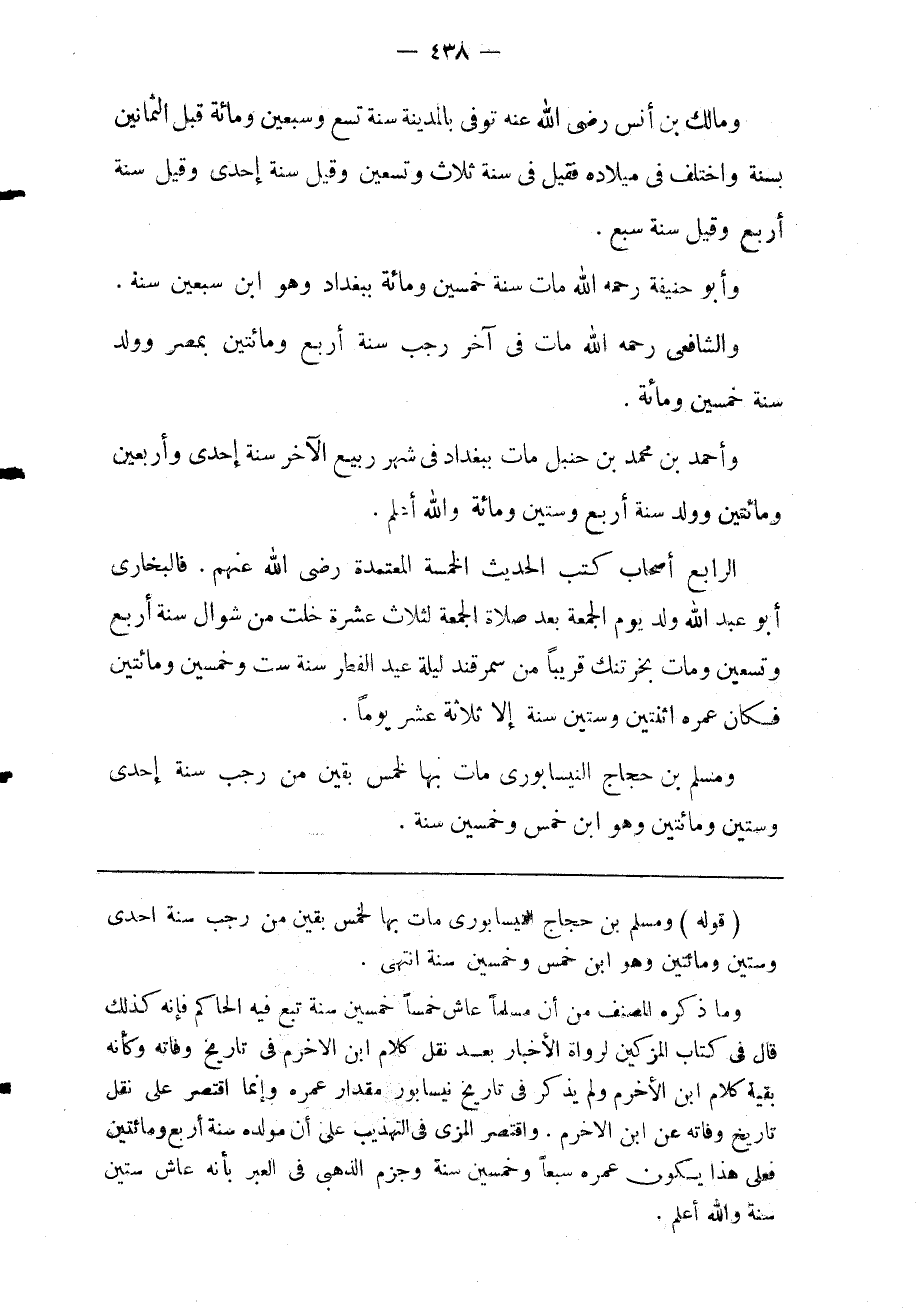 — ٤٣٨ —
ومالك بن أنس رضى الله عنه توفى بالمدينة سنة تسع وسبعين ومائة قبل الثمانين
بسنة واختلف فى ميلاده فقيل فى سنة ثلاث وتسعين وقيل سنة إحدى وقيل سنة
أربع وقيل سنة سبع .
وأبو حنيفة رحمه الله مات سنة خمسين ومائة ببغداد وهو ابن سبعين سنة .
والشافعى رحمه الله مات فى آخر رجب سنة أربع ومائتين بمصر وولد
سنة خمسين ومائة .
وأحمد بن محمد بن حنبل مات ببغداد فى شهر ربيع الآخر سنة إحدى وأربعين
ومائتين وولد سنة أربع وستين ومائة والله أعلم .
الرابع أصحاب كتب الحديث الخمسة المعتمدة رضى الله عنهم . فالبخارى
أبو عبد الله ولد يوم الجمعة بعد صلاة الجمعة لثلاث عشرة خلت من شوال سنة أربع
وتسعين ومات بخرتنك قريباً من سمرقند ليلة عيد الفطر سنة ست وخمسين ومائتين
فكان عمره اثنتين وستين سنة إلا ثلاثة عشر يوماً .
ومسلم بن حجاج النيسابورى مات بها لخمس بقين من رجب سنة إحدى
وستين ومائتين وهو ابن خمس وخمسين سنة .
( قوله ) ومسلم بن حجاج النيسابورى مات بها لخمس بقين من رجب سنة احدى
وستين ومائتين وهو ابن خمس وخمسين سنة انتهى .
وما ذكره المصنف من أن مسلماً عاش خمساً خمسين سنة تبع فيه الحاكم فإنه كذلك
قال فى كتاب المزكين لرواة الأخبار بعد نقل كلام ابن الاخرم فى تاريخ وفاته وكأنه
بقية كلام ابن الأخرم ولم يذكر فى تاريخ نيسابور مقدار عمره وإنما اقتصر على نقل
تاريخ وفاته عن ابن الاخرم . واقتصر المزى فى التهذيب على أن مولده سنة أربع ومائتين
فعلى هذا يكون عمره سبعاً وخمسين سنة وجزم الذهبى فى العبر بأنه عاش ستين
سنة والله أعلم .